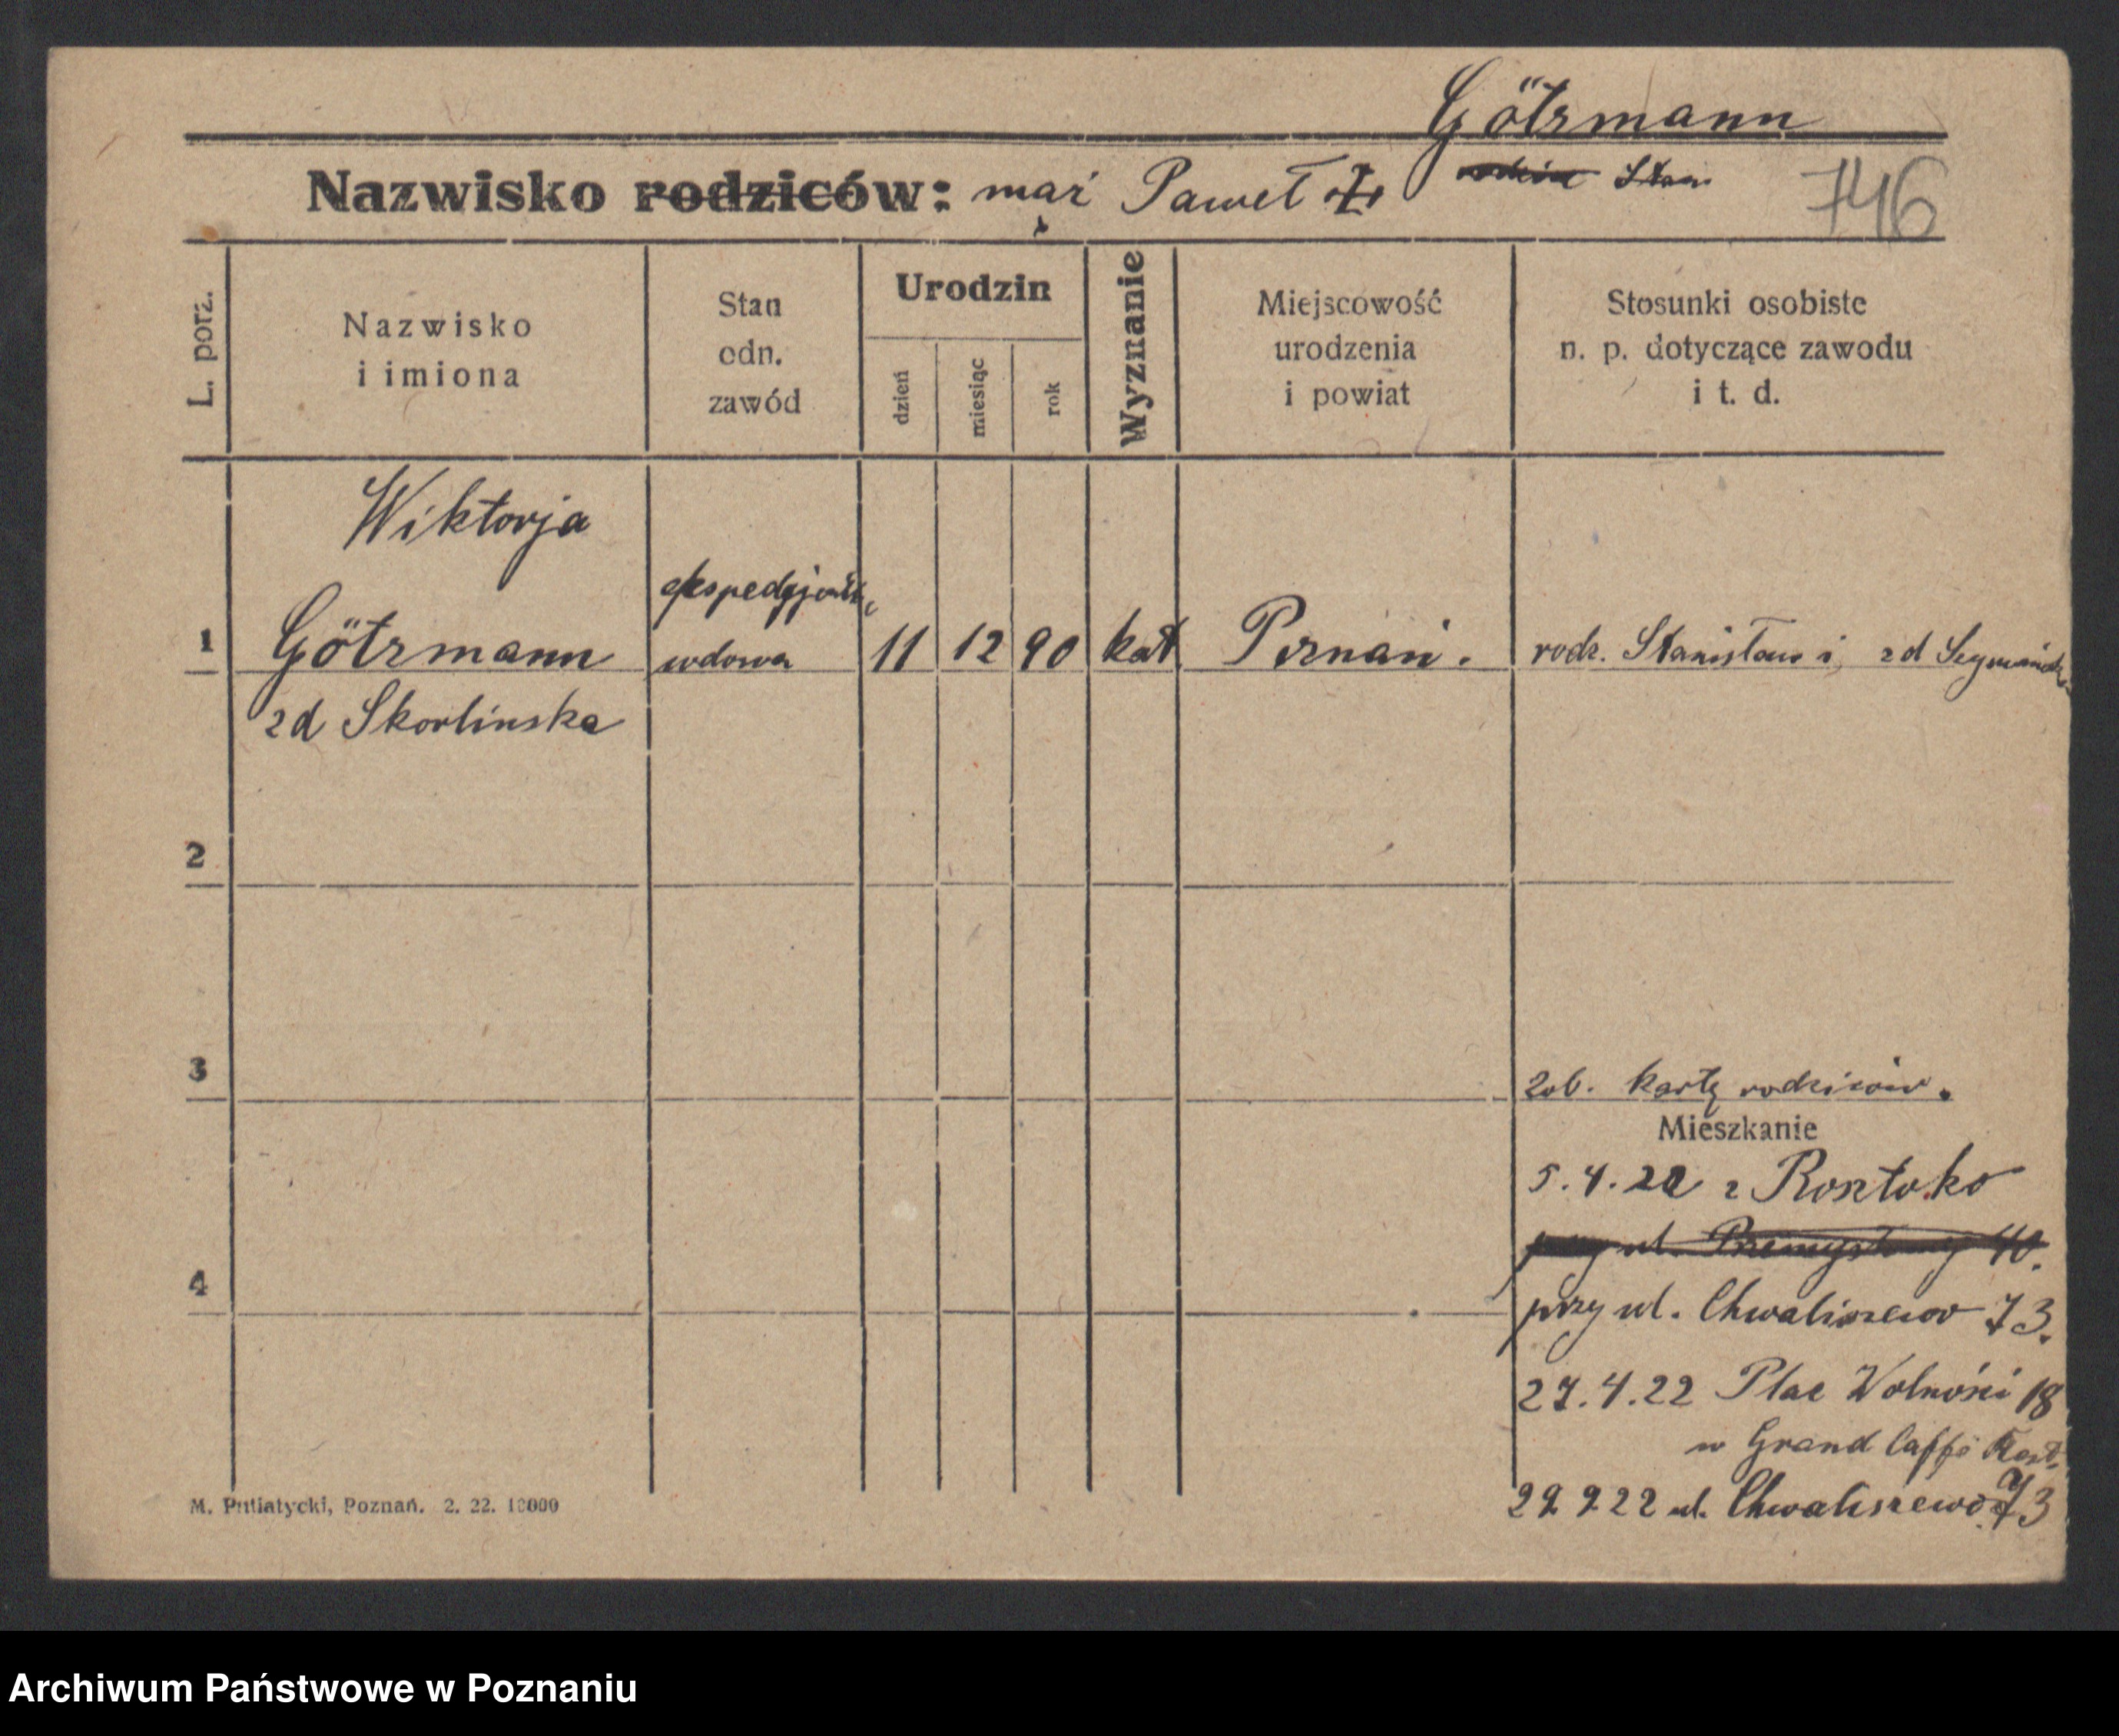 Götzmann
Nazwisko rodziców: mąż Paweł Stan 746
L. porz.
Nazwisko
i imiona
Stan
odn.
zawód
Urodzin
dzień
miesiąc
rok
Wyznanie
Miejscowość
urodzenia
i powiat
Stosunki osobiste
n. p. dotyczące zawodu
i t. d.
Wiktorja
1 Götzmann wdowa 11 12 90 kat. Poznań. rodz. Stanisław i zd
zd Skorlinska
2
3
Zob. kartę rodziców.
Mieszkanie
5.4.22 z Rosztoko
przy ul. 40.
4
przy ul. Chwaliszewo 73.
27.4.22 Plac Wolności 18
w Grand Caffé
29 9 22 ul. Chwaliszewo 73
M. Putiatycki, Poznań. 2. 22. 10000
Archiwum Państwowe w Poznaniu